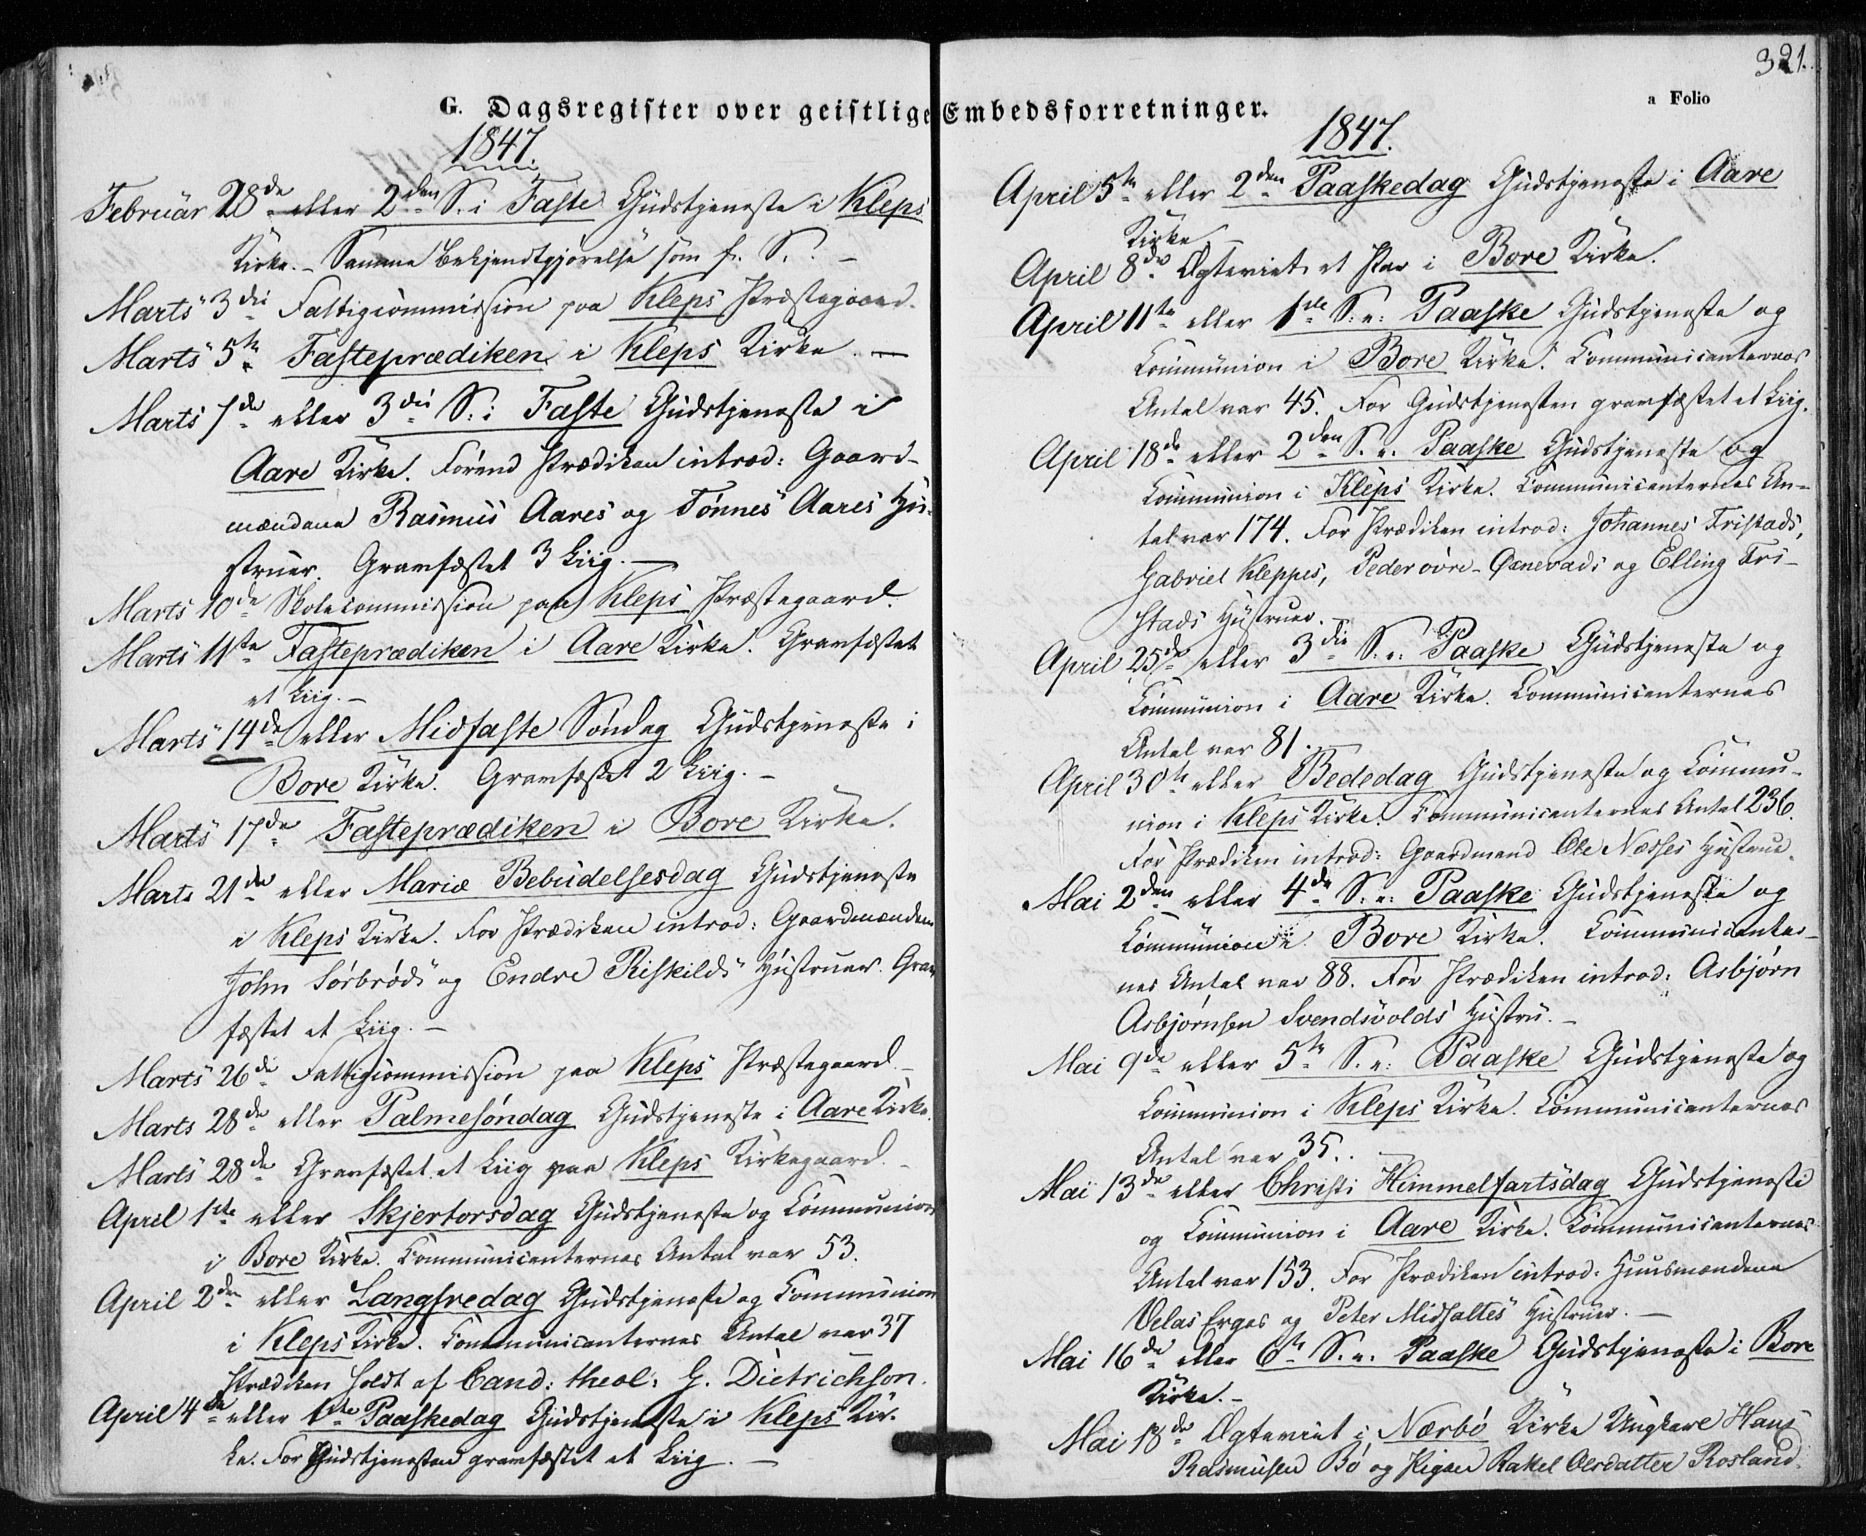 321.
G. Dagsregister over geistlige Embedsforretninger.
a Folio
1847.
Februar 28de eller 2den S. i Faste Gudstjeneste i Kleps
Kirke. – Samme Bekjendtgjørelse som f. S. –
Marts 3die Fattigcommission paa Kleps Præstegaard.
Marts 5te Fasteprædiken i Kleps Kirke. –
Marts 7de eller 3die S. i Faste Gudstjeneste i
Aare Kirke. Førend Prædiken introd: Gaard-
mændene Rasmus Aares og Tønnes Aares Hu-
struer. Gravfæstet 3 Liig. –
Marts 10de Skolecommission paa Kleps Præstegaard.
Marts 11te Fasteprædiken i Aare Kirke. Gravfæstet
et Liig. –
Marts 14de eller Midfaste Søndag Gudstjeneste i
Bore Kirke. Gravfæstet 2 Liig. –
Marts 17de Fasteprædiken i Bore Kirke.
Marts 21de eller Mariæ Bebudelsesdag Gudstjeneste
i Kleps Kirke. For Prædiken introd: Gaardmændene
John Sørbrøds og Endre Riskilds Hustruer. Grav
fæstet et Liig. –
Marts 26de Fattigcommission paa Kleps Præstegaard. –
Marts 28de eller Palmesøndag Gudstjeneste i Aare Kirke.
Marts 28de Gravfæstet et Liig paa Kleps Kirkegaard. –
April 1ste eller Skjertorsdag Gudstjeneste og Communion
i Bore Kirke. Communicanternes Antal var 53.
April 2den eller Langfredag Gudstjeneste og Communion
i Kleps Kirke. Communicanternes Antal var 37
Prædiken holdt af Cand: theol: G. Dietrichson.
April 4de eller 1ste Paaskedag Gudstjeneste i Kleps Kir-
ke. For Gudstjenesten gravfæstet et Liig. –
1847.
April 5te eller 2den Paaskedag Gudstjeneste i Aare
Kirke –
April 8de Ægteviet et Par i Bore Kirke.
April 11te eller 1ste S. e. Paaske Gudstjeneste og
Communion i Bore Kirke. Communicanternes
Antal var 45. For Gudstjenesten gravfæstet et Liig.
April 18de eller 2den S. e. Paaske Gudstjeneste og
Communion i Kleps Kirke. Communicanternes An-
tal var 174. For Prædiken introd: Johannes Fristads,
Gabriel Kleppes, Peder øvre-Øxnevads og Elling Fri-
stads Hustruer.
April 25de eller 3die S. e. Paaske Gudstjeneste og
Communion i Aare Kirke. Communicanternes
Antal var 81. –
April 30te eller Bededag Gudstjeneste og Commu-
nion i Kleps Kirke. Communicanternes Antal 236.
For Prædiken introd: Gaardmand Ole Næsses Hustrue.
Mai 2den eller 4de S. e. Paaske Gudstjeneste og
Communion i Bore Kirke. Communicanter-
nes Antal var 88. For Prædiken introd: Asbjørn
Asbjørnsen Svendsvolds Hustru. –
Mai 9de eller 5te S. e. Paaske Gudstjeneste og
Communion i Kleps Kirke. Communicanternes
Antal var 35. –
Mai 13de eller Christi Himmelfartsdag Gudstjeneste
og Communion i Aare Kirke. Communicanternes
Antal var 153. For Prædiken introd: Huusmændene
Velas Erges og Peter Midfaltes Hustruer. –
Mai 16de eller 6te S. e. Paaske Gudstjeneste i Bore
Kirke. –
Mai 18de Ægteviet i Nærbø Kirke Ungkarl Hans
Rasmusen Bø og Pigen Rakel Olsdatter Rosland.